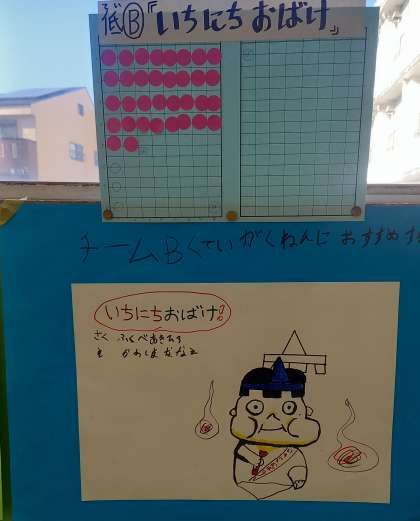 低Ⓑ『いちにちおばけ』
チームBくていがくねんに おすすめす
いちにちおばけ
さく ふくべあきひろ
え かわしまななえ